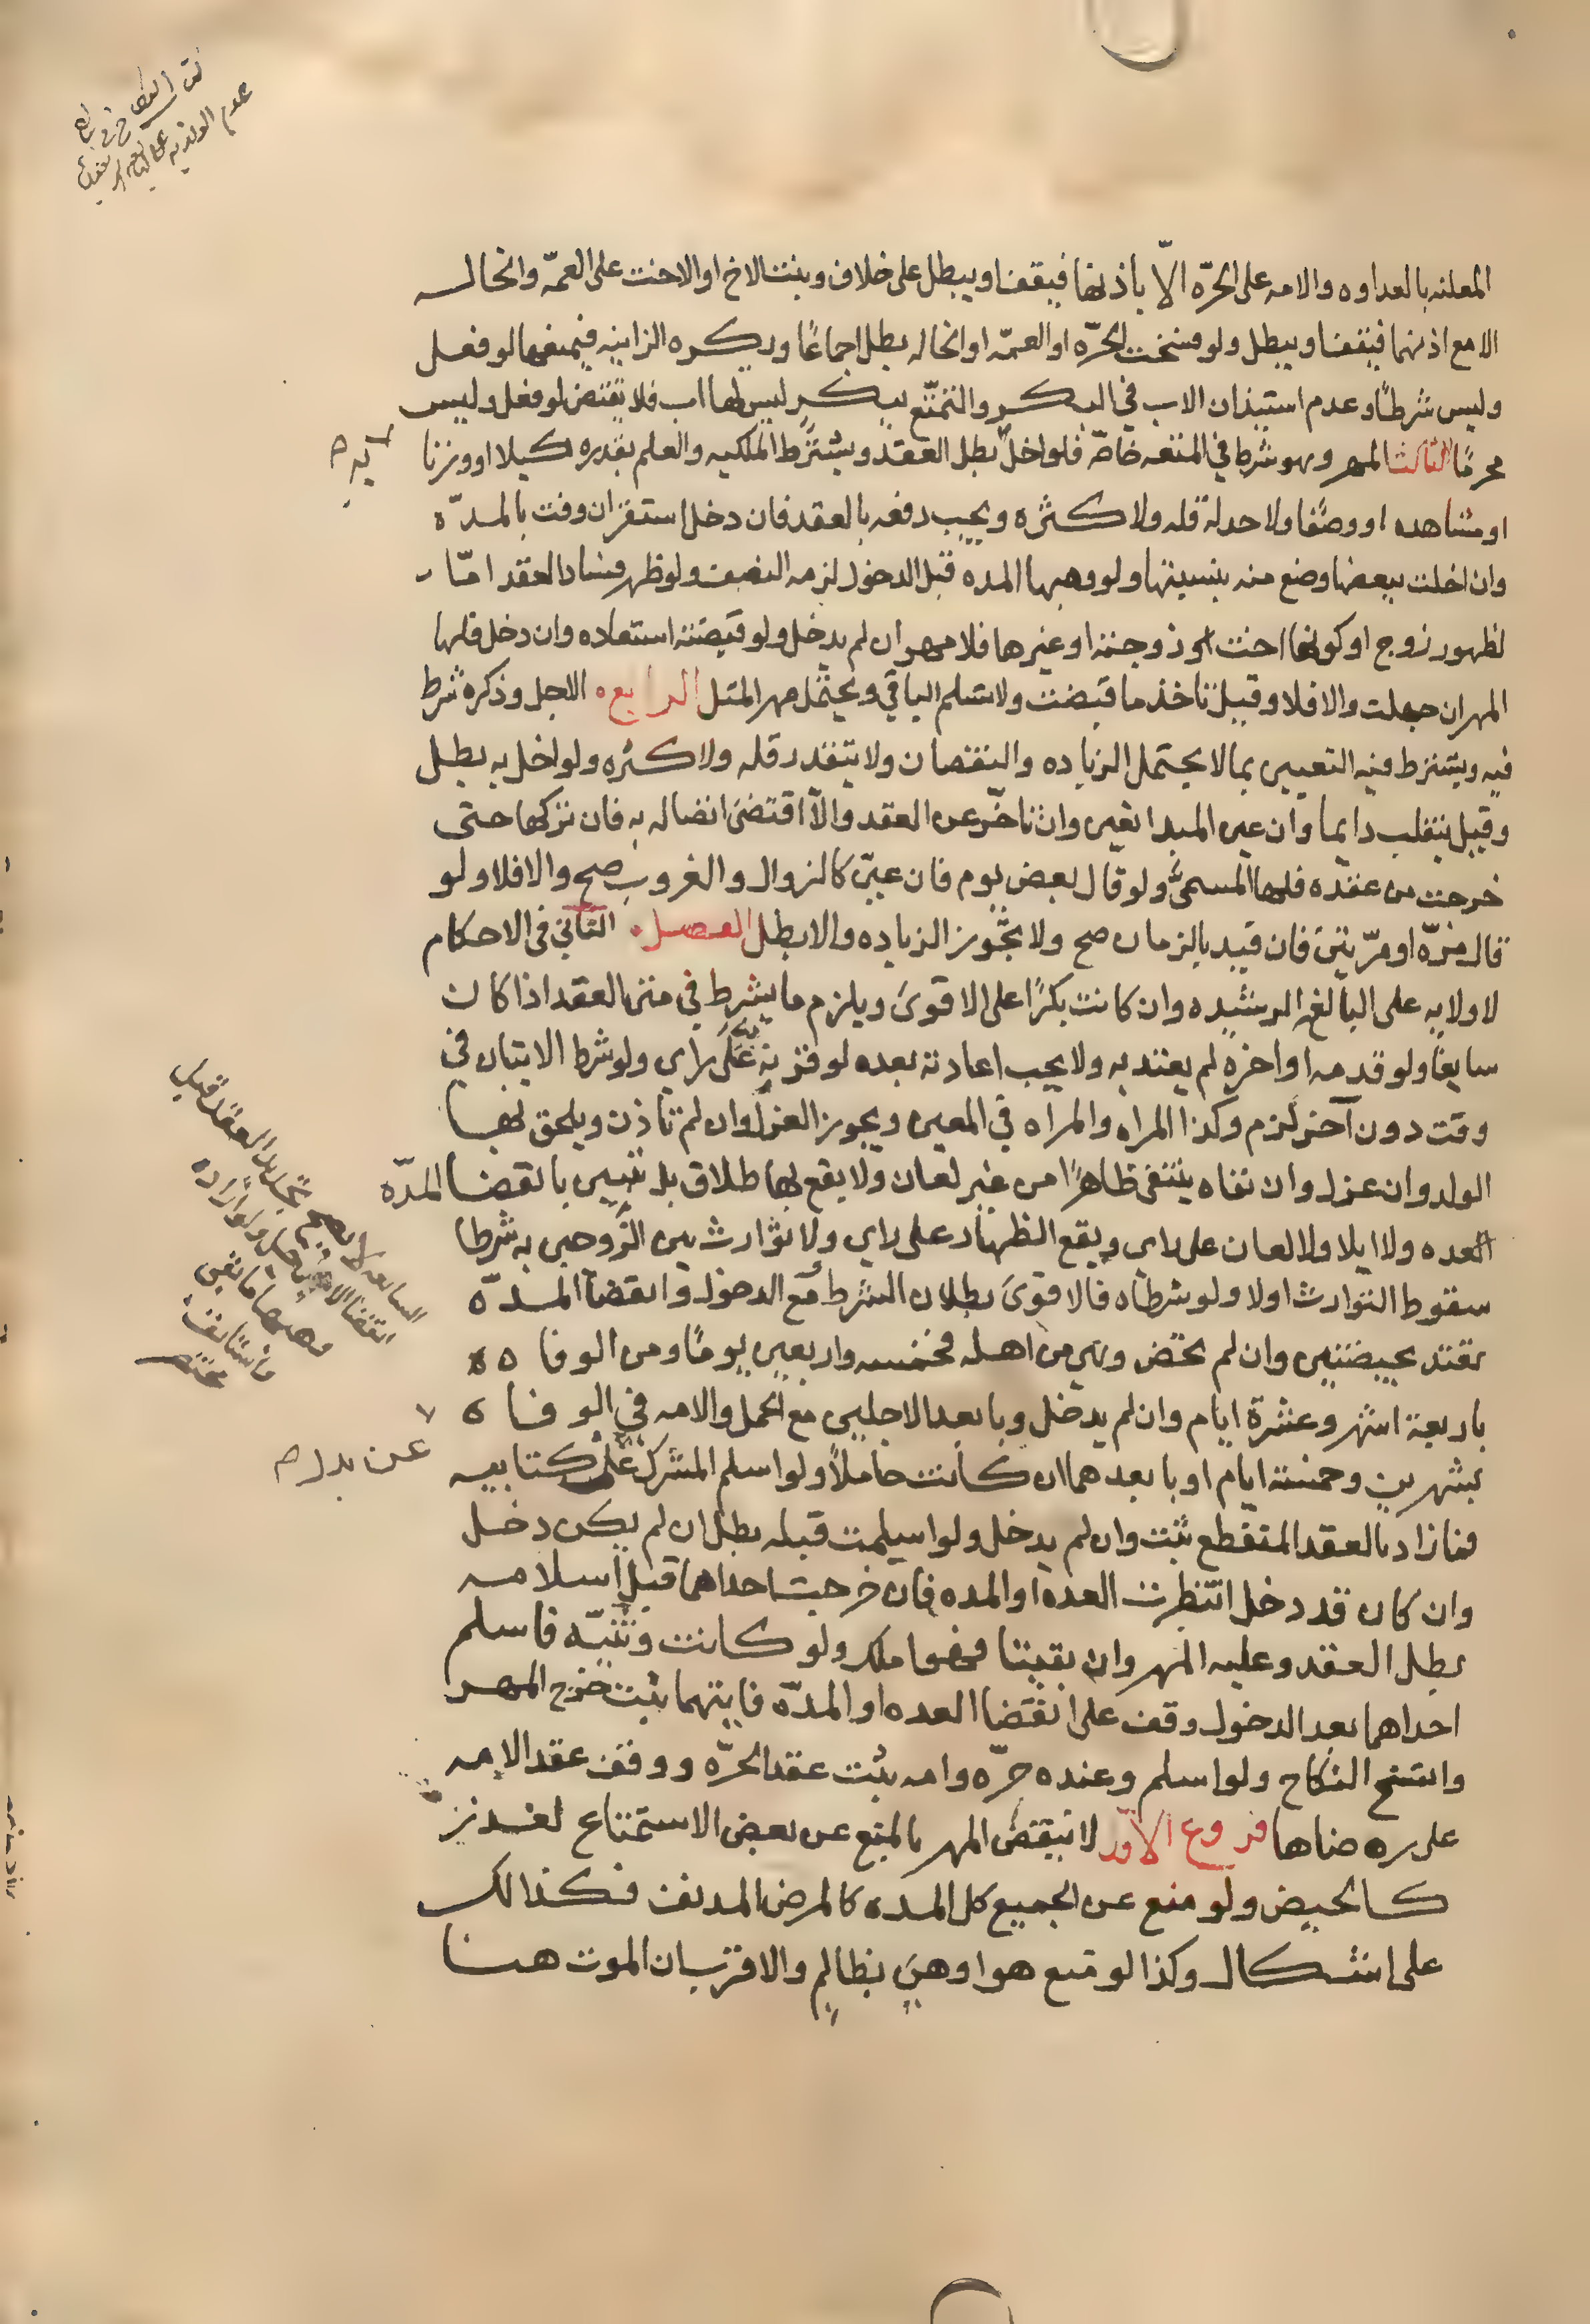 المعلنه بالعداوه والامه على الحرّه الّا باذنها فيقف او يبطل على خلاف وبنت الاخ او الاخت على العمّه والخاله
الا مع اذنهما فيقف او يبطل ولو فسخت الحرّه او العمّه او الخاله بطل اجماعًا ويكره الزانيه فيمنعها لو فعل
وليس شرطًا وعدم استيذان الاب في البكر والتمتّع ببكر ليس لها اب فلا يقتض لو فعل وليس
محرمًا الثالث المهر وهو شرط في المتعه خاصّه فلو اخل بطل العقد ويشترط الملكيه والعلم بقدره كيلا او وزنا
او مشاهده او وصفا ولا حد له قله ولا كثره ويجب دفعه بالعقد فان دخل استقر ان وفت بالمدّه
وان اخلت ببعضها وضع منه بنسبتها ولو وهبها المده قبل الدخول لزمه النصف ولو ظهر فساد العقد امّا
لظهور زوج او كونها اخت زوجته او غيرها فلا مهر ان لم يدخل ولو قبضته استعاده وان دخل فلها
المهر ان جهلت والا فلا وقيل تاخذ ما قبضت ولا تسلم الباقي ويحتمل مهر المثل الرابع الاجل وذكره شرط
فيه ويشترط فيه التعيين بما لا يحتمل الزياده والنقصان ولا يتقدر قله ولا كثره ولو اخل به بطل
وقيل ينقلب دايما وان عين المبدا تعين وان تاخّر عن العقد والّا اقتضى اتصاله به فان تركها حتى
خرجت من عقده فلها المسمى ولو قال بعض يوم فان عيّن كالزوال والغروب صح والا فلا ولو
قال مرّه او مرّتين فان قيد بالزمان صح ولا تجوز الزياده والا بطل الفصل الثاني في الاحكام
لا ولايه على البالغه الرشيده وان كانت بكرًا على الاقوى ويلزم ما يشرط في متن العقد اذا كان
سايغًا ولو قدمه او اخره لم يعتد به ولا يجب اعادته بعده لو قرنه به على راي ولو شرط الاتيان في
وقت دون آخر لزم وكذا المراه والمراه في المعين ويجوز العزل وان لم تاذن ويلحق بها
الولد وان عزل وان نفاه ينتفى ظاهرًا من غير لعان ولا يقع بها طلاق بل تبين بانقضا المدّه
العده ولا ايلا ولا لعان على راي ويقع الظهار على راي ولا توارث بين الزوجين به شرطا
سقوط التوارث اولا ولو شرطاه فالاقوى بطلان الشرط مع الدخول وانقضا المدّه
تعتد بحيضتين وان لم تحض وهي من اهله فخمسه واربعين يومًا ومن الوفاه
باربعة اشهر وعشرة ايام وان لم يدخل وبابعد الاجلين مع الحمل والامه في الوفاه
بشهرين وخمسة ايام او بابعدهما ان كانت حاملًا ولو اسلم المشرك على كتابيه
فما زاد بالعقد المنقطع ثبت وان لم يدخل ولو اسلمت قبله بطل ان لم يكن دخل
وان كان قد دخل انتظرت العده او المده فان خرجت احداهما قبل اسلامه
بطل العقد وعليه المهر وان بقيتا فهو املك ولو كانت وثنيّه فاسلم
احداهما بعد الدخول وقف على انقضا العده او المدّه فايتهما ثبت خرج المهر
وانفسخ النكاح ولو اسلم وعنده حرّه وامه ثبت عقد الحرّه ووقف عقد الامه
على رضاها فروع الاوّل لا ينقص المهر بالمنع عن بعض الاستمتاع لعذر
كالحيض ولو منع عن الجميع كل المده كالمرض المدنف فكذالك
على اشكال وكذا لو منع هو او هي بظالم والاقرب ان الموت هنا
السابعه لا يصح تجديد العقد قبل
انقضا الاجل ولو اراده
وهبها ما بقى
واستانف
عن بدل